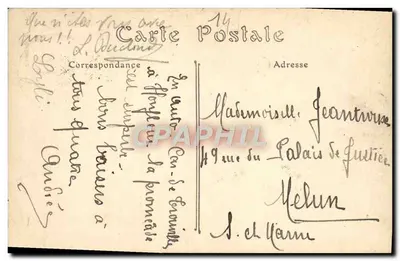 que n'êtes vous avec
nous !!
14
Carte Postale
Correspondance
Adresse
En auto. Cas. de Trouville
à Honfleur la promenade
est superbe
bons baisers à
tous quatre
Andrée
Mademoiselle Jeantroux
49 rue du Palais de Justice
Melun
S. et Marne
CPHPHIL